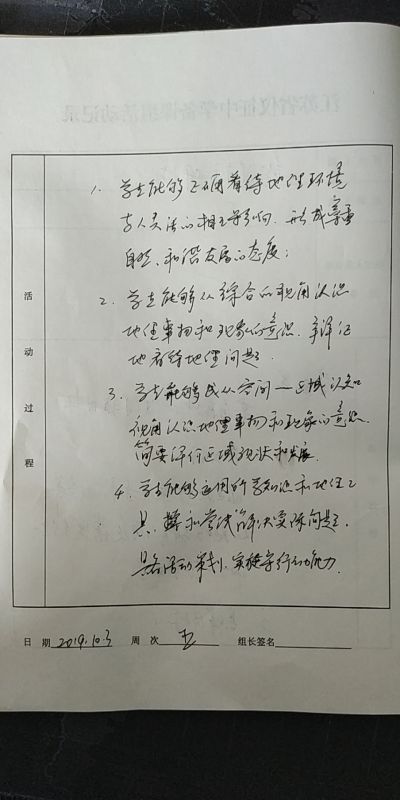 活动过程
1. 学生能够正确看待地理环境
与人类活动的相互影响, 形成尊重
自然、和谐发展的态度;
2. 学生能够从综合的视角认识
地理事物和现象的意识, 辩证
地看待地理问题.
3. 学生能够从空间—区域认知
视角认识地理事物和现象的意识.
简要评价区域现状和发展.
4. 学生能够运用所学知识和地理工
具, 和尝试解决实际问题.
具备活动策划、实施等行动能力.
日 期 2019.10.3 周 次 五 组长签名